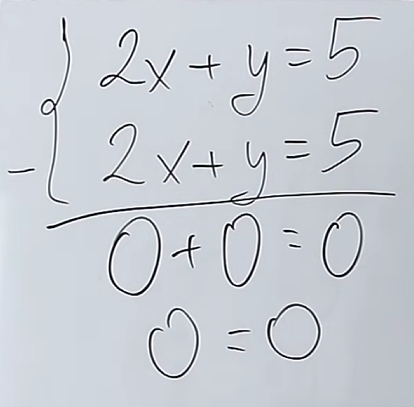 2x + y = 5
- 2x + y = 5
0 + 0 = 0
0 = 0